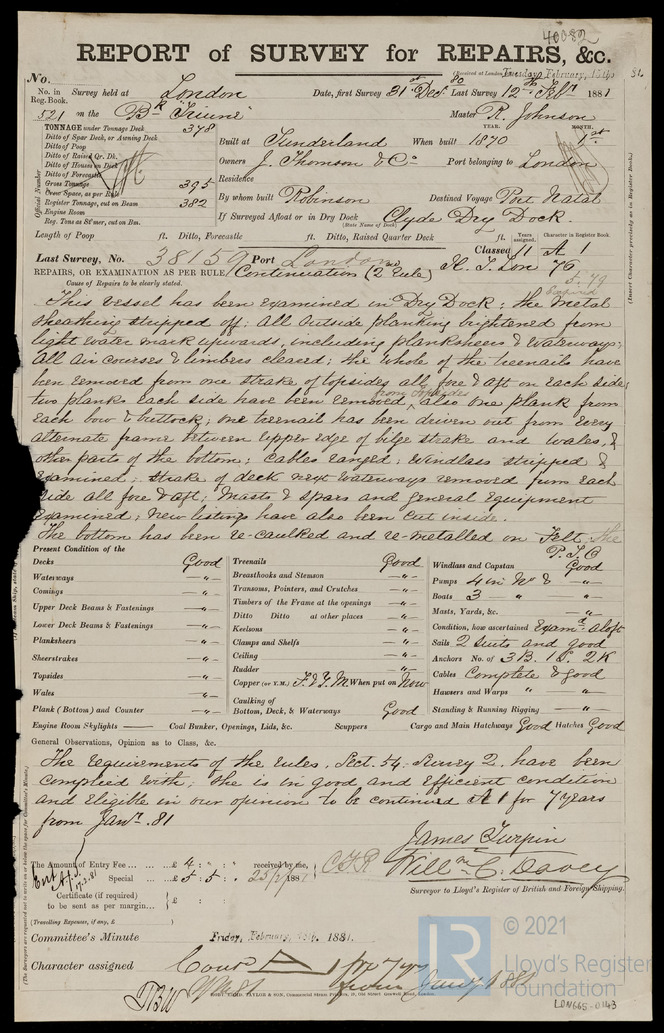 40082
REPORT of SURVEY for REPAIRS, &c.
(Received at London, Tuesday February, 15th 81.
No.
No. in Reg. Book. Survey held at London Date, first Survey 31st Decr 80 Last Survey 12th Feby 1881
521 on the Bk Triune Master R. Johnson
TONNAGE under Tonnage Deck 378
Ditto of Spar Deck, or Awning Deck
Ditto of Poop
Ditto of Raised Qr. Dk.
Ditto of Houses on Deck
Ditto of Forecastle
Gross Tonnage 395
Crew Space, as per Rule
Register Tonnage, cut on Beam 382
Engine Room
Reg. Tons as St'mer, cut on Bm.
Official Number
YEAR. MONTH.
Built at Sunderland When built 1870
Owners J. Thomson & Co Port belonging to London
Residence
By whom built Robinson Destined Voyage Port Natal
If Surveyed Afloat or in Dry Dock Clyde Dry Dock.
(State Name of Dock)
Length of Poop ft. Ditto, Forecastle ft. Ditto, Raised Quarter Deck ft. Years assigned. Character in Register Book.
Last Survey, No. 38159 Port London Classed 11 A 1
REPAIRS, OR EXAMINATION AS PER RULE, Continuation (2nd Rule)
Cause of Repairs to be clearly stated.
This vessel has been examined in Dry Dock; the metal
sheathing stripped off; all outside planking brightened from
light water mark upwards, including planksheers & waterways;
all air courses & limbers cleared; the whole of the treenails have
been removed from one strake of topsides all fore & aft on each side;
two planks each side have been removed from topsides also one plank from
each bow & buttock; one treenail has been driven out from every
alternate frame between upper edge of bilge strake and wales, &
other parts of the bottom; cables ranged; windlass stripped &
examined; strake of deck next waterways removed from each
side all fore & aft; masts & spars and general equipment
examined; new listings have also been cut inside.
The bottom has been re-caulked and re-metalled on Felt. the
P.T.O
Present Condition of the
Decks Good
Waterways -"-
Comings -"-
Upper Deck Beams & Fastenings -"-
Lower Deck Beams & Fastenings -"-
Planksheers -"-
Sheerstrakes -"-
Topsides -"-
Wales -"-
Plank (Bottom) and Counter -"-
Treenails Good
Breasthooks and Stemson -"-
Transoms, Pointers, and Crutches -"-
Timbers of the Frame at the openings -"-
Ditto Ditto at other places -"-
Keelsons -"-
Clamps and Shelfs -"-
Ceiling -"-
Rudder -"-
Copper (or Y.M.) F. & Y.M. When put on Now
Caulking of Bottom, Deck, & Waterways Good
Windlass and Capstan Good
Pumps 4 in No & -"-
Boats 3 " -"-
Masts, Yards, &c. -"-
Condition, how ascertained Examd aloft
Sails 2 Suits and good
Anchors No. of 3 B. 1 S. 2 K
Cables Complete & Good
Hawsers and Warps " -"-
Standing & Running Rigging -"-
Engine Room Skylights Coal Bunker, Openings, Lids, &c. Scuppers Cargo and Main Hatchways Good Hatches Good
General Observations, Opinion as to Class, &c.
The requirements of the rules, Sect. 54, Survey 2, have been
complied with; she is in good and efficient condition
and eligible in our opinion to be continued A 1 for 7 years
from Jany. 81
James Turpin
Willm C. Davey
Surveyor to Lloyd's Register of British and Foreign Shipping.
The Amount of Entry Fee £ 4 : : received by me,
Special £ 5 : 5 : 25/2/1881
17.2.81
Certificate (if required) to be sent as per margin £ :
(Travelling Expenses, if any, £ )
Committee's Minute Friday, February, 18th, 1881.
Character assigned Cont A 1 for 7 yrs
from Jany 1881
© 2021
LR
Lloyd's Register
Foundation
LDN665-0143